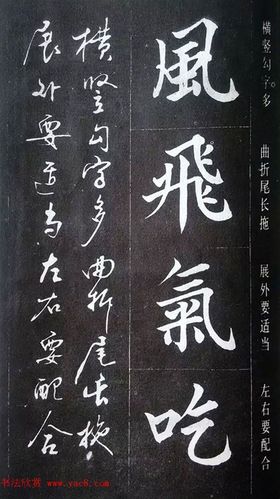 横竖勾字。多 曲折尾长拖 展外要适当 左右要配合
風飛氣吃
横竖勾字多曲折尾长拖
展外要适当左右要配合
书法欣赏 www.yac8.com